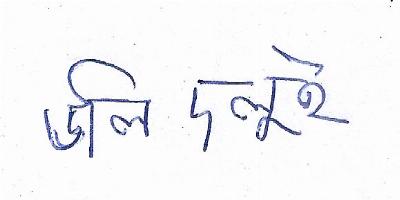 ডলি দলুই